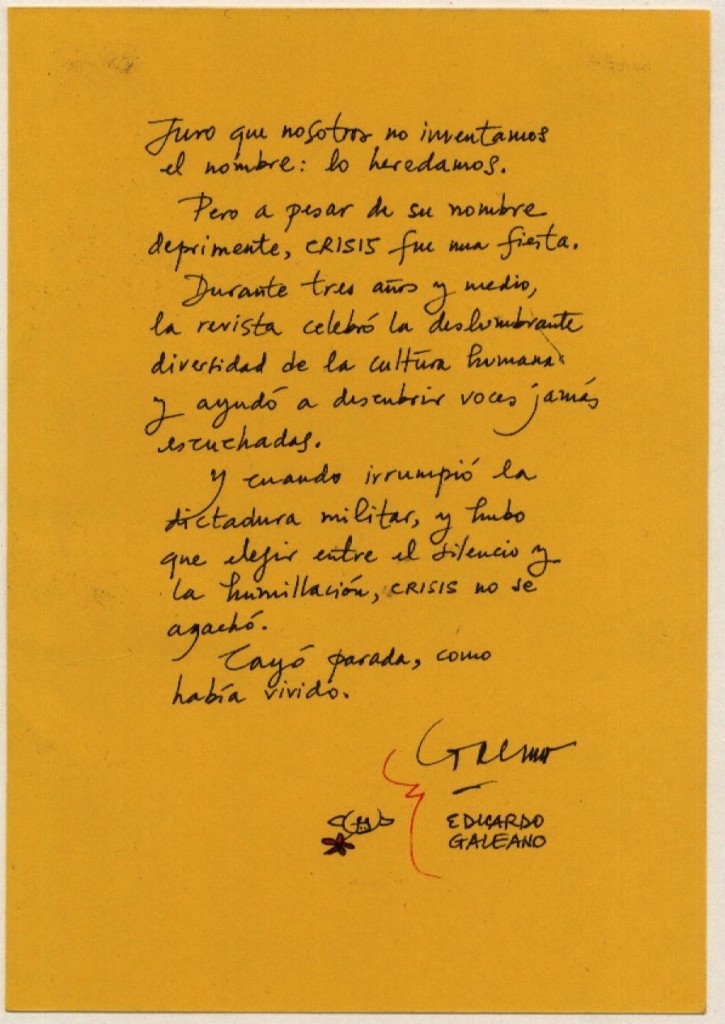 Juro que nosotros no inventamos
el nombre: lo heredamos.
Pero a pesar de su nombre
deprimente, CRISIS fue una fiesta.
Durante tres años y medio,
la revista celebró la deslumbrante
diversidad de la cultura humana
y ayudó a descubrir voces jamás
escuchadas.
Y cuando irrumpió la
dictadura militar, y hubo
que elegir entre el silencio y
la humillación, CRISIS no se
agachó.
Cayó parada, como
había vivido.
EDUARDO
GALEANO